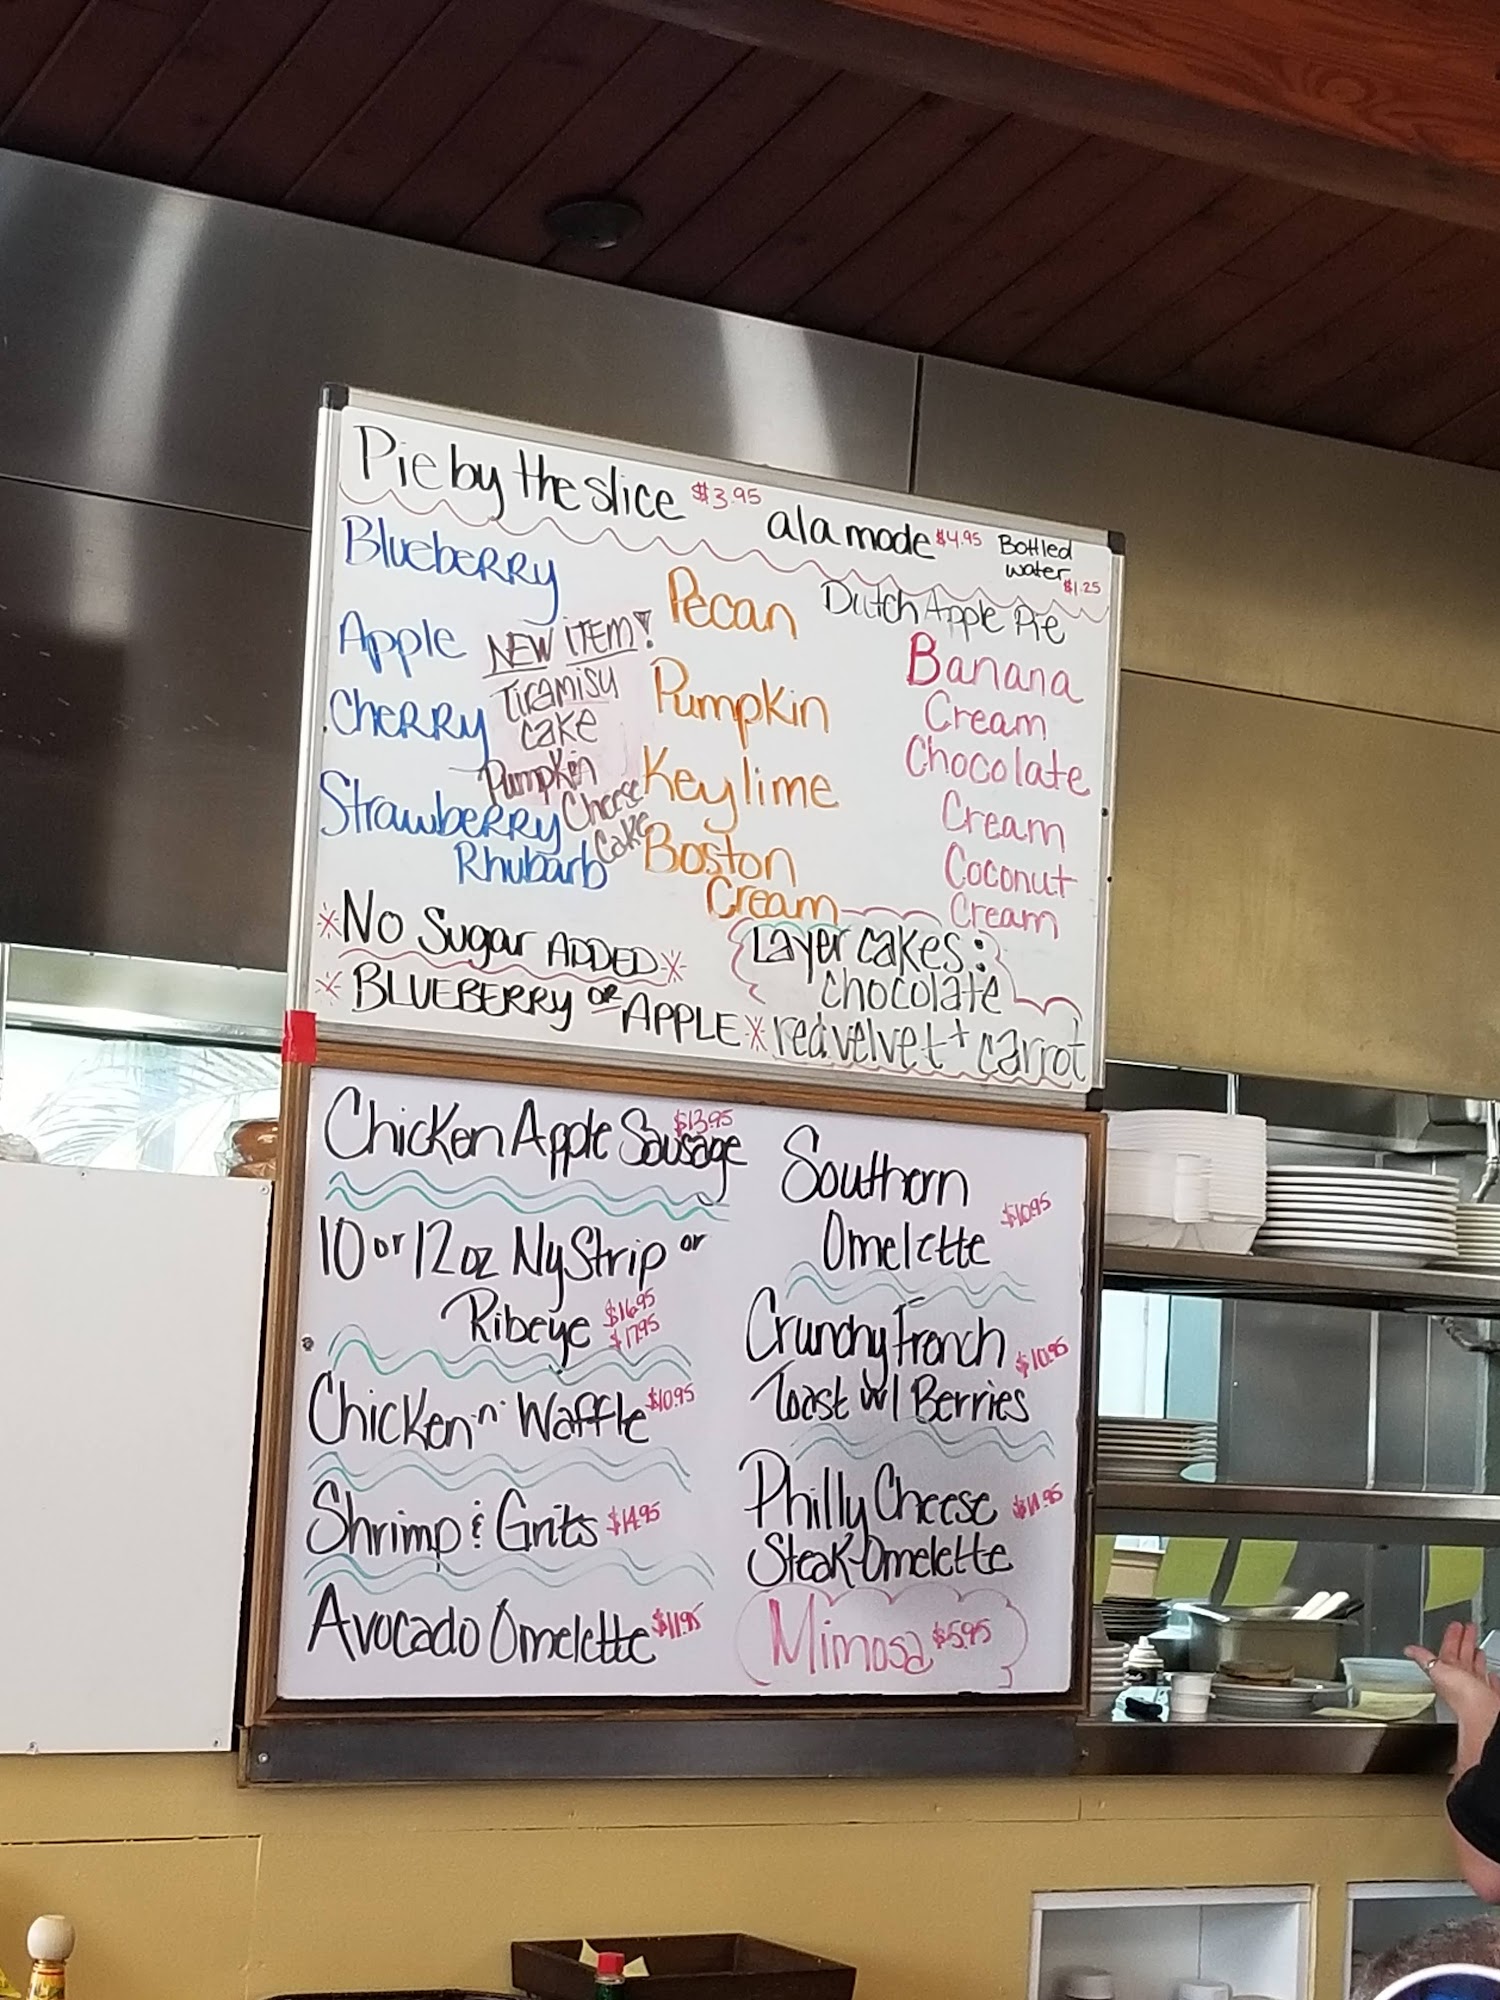 Pie by the slice $3.95 ala mode $4.95 Bottled water $1.25
Blueberry
Apple
Cherry
Strawberry
Rhubarb
NEW ITEM!
Tiramisu
cake
Pumpkin
Cheese
Cake
Pecan
Pumpkin
Keylime
Boston
Cream
Dutch Apple Pie
Banana
Cream
Chocolate
Cream
Coconut
Cream
*No Sugar ADDED*
*BLUEBERRY OR APPLE*
Layer cakes:
chocolate
red velvet + carrot
Chicken Apple Sausage $13.95
10 or 12 oz Ny Strip or
Ribeye $16.95
$17.95
Chicken 'n' Waffle $10.95
Shrimp & Grits $14.95
Avocado Omelette $11.95
Southern
Omelette $10.95
Crunchy French
Toast w/ Berries $10.95
Philly Cheese
Steak Omelette $11.95
Mimosa $5.95